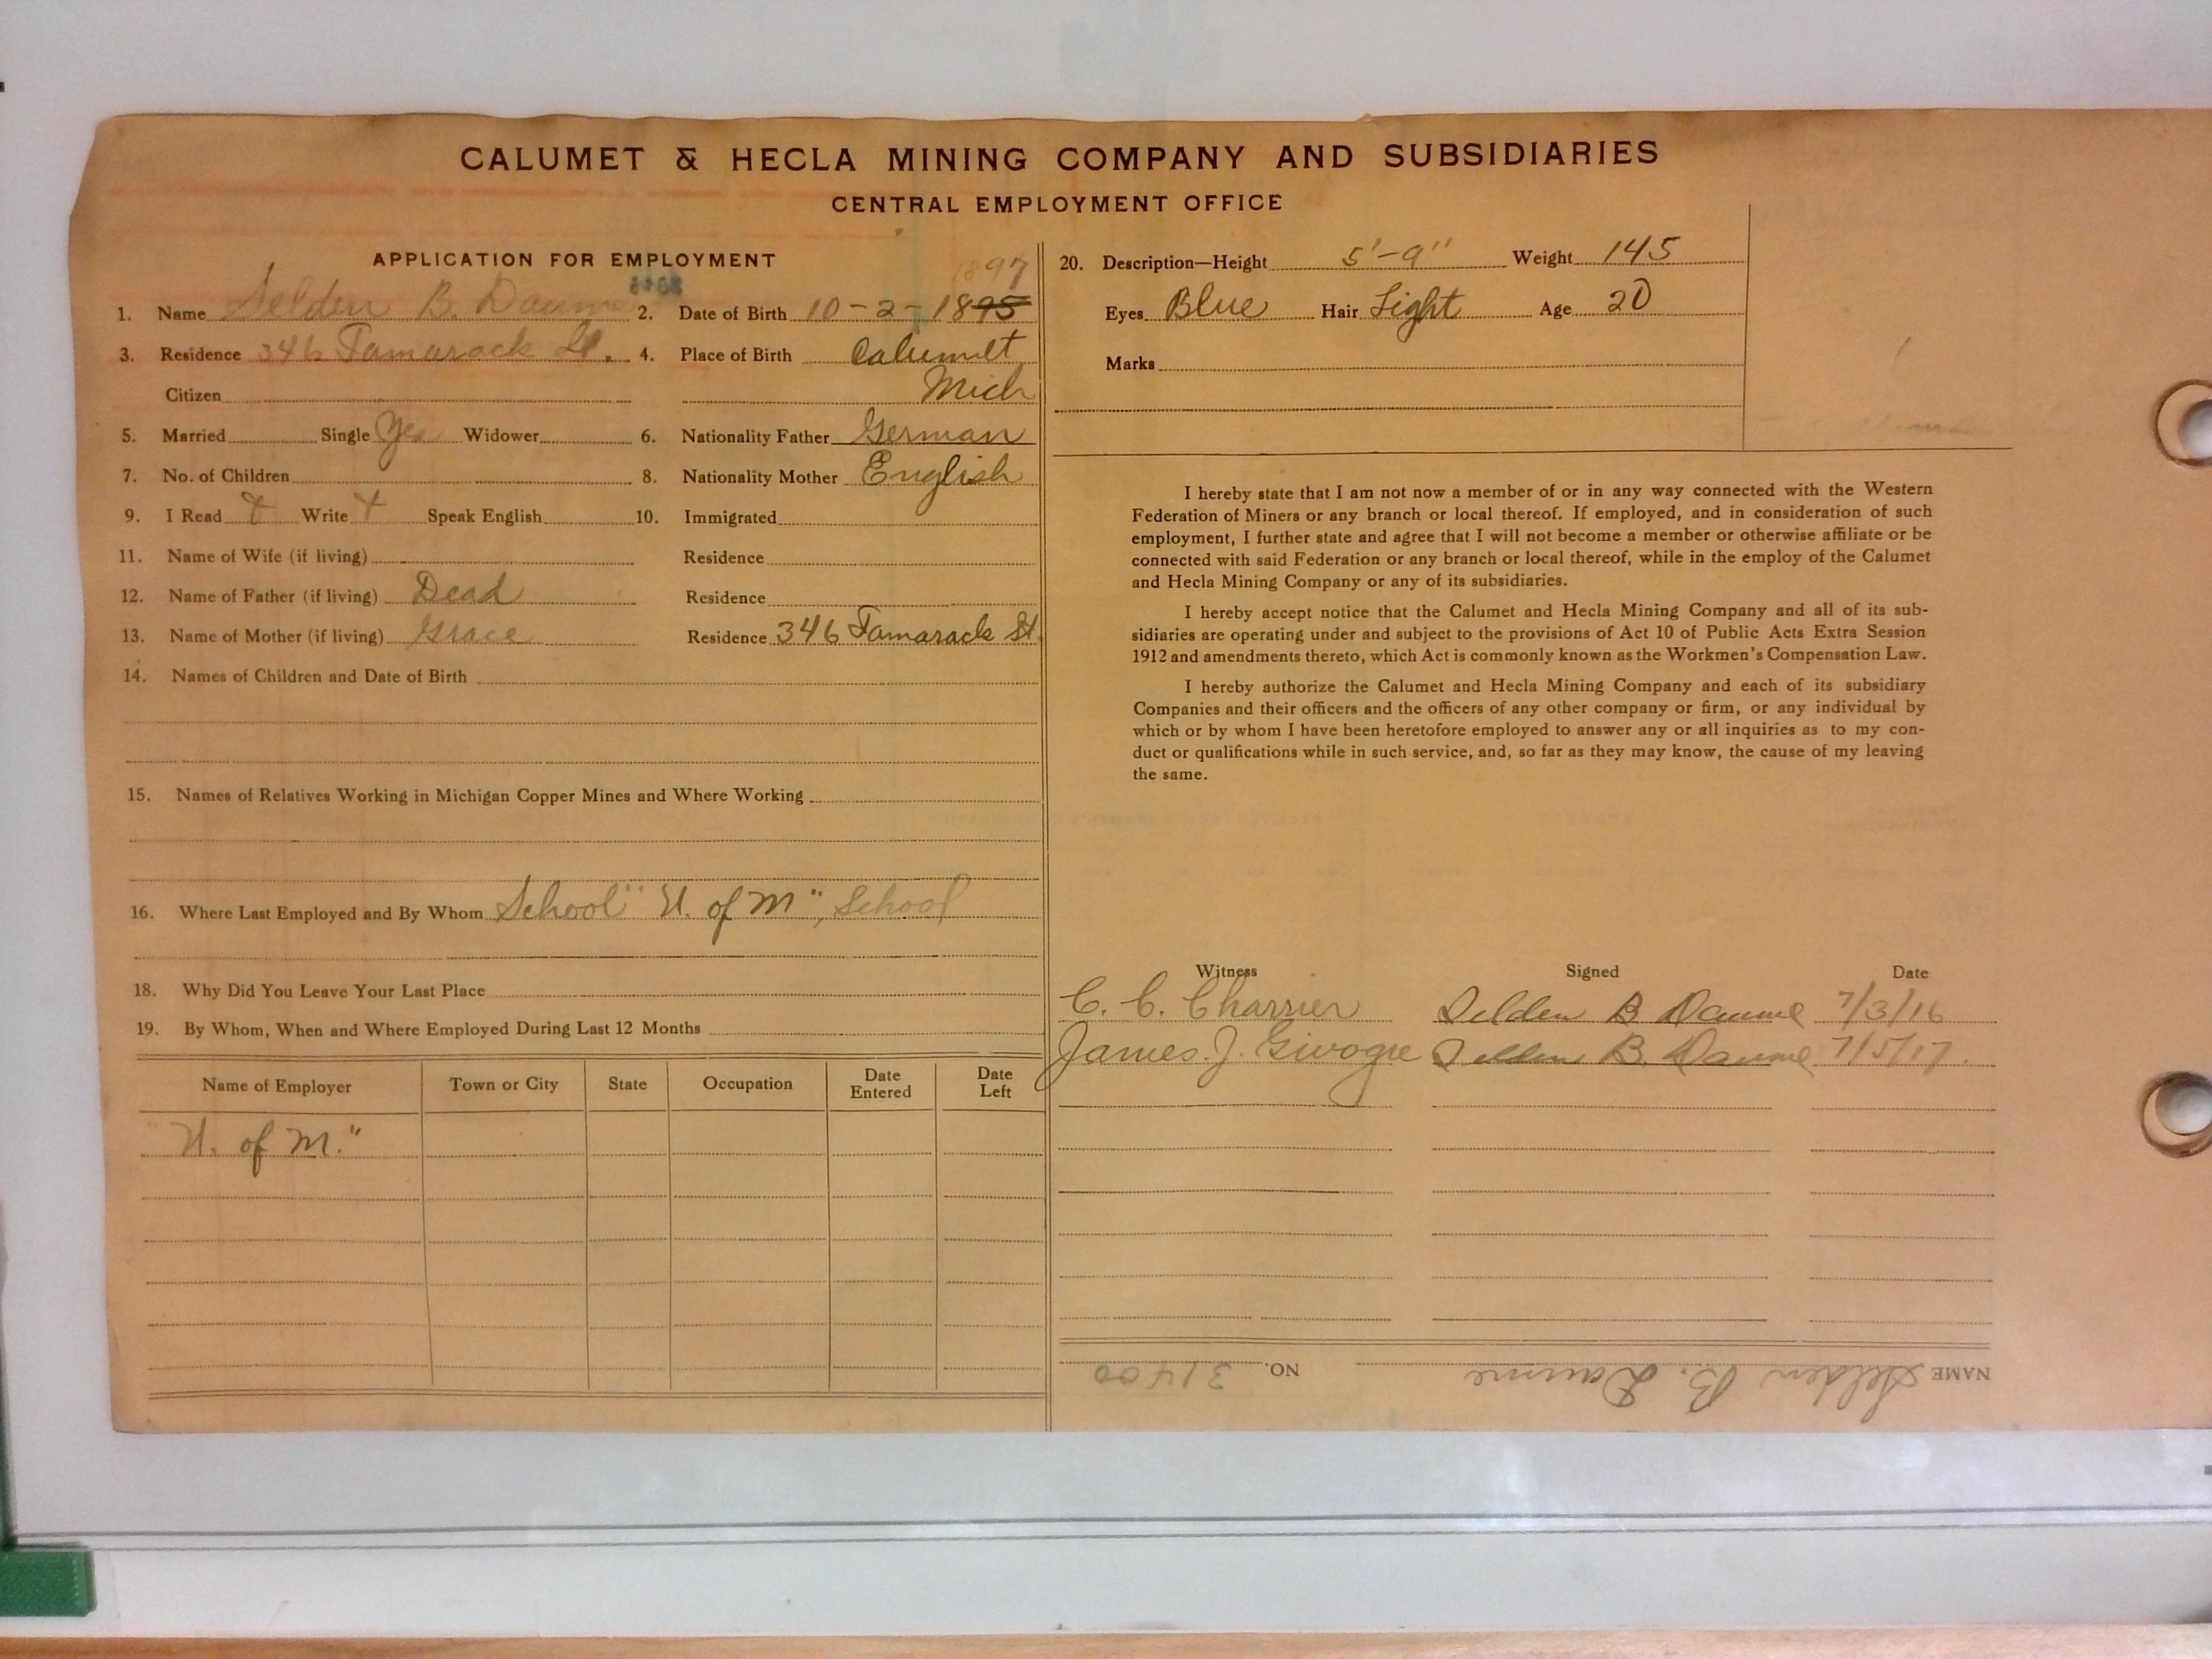 CALUMET & HECLA MINING COMPANY AND SUBSIDIARIES
CENTRAL EMPLOYMENT OFFICE
APPLICATION FOR EMPLOYMENT
1897
1. Name Selden B. Daume 2. Date of Birth 10-2-1895
3. Residence 346 Tamarack St. 4. Place of Birth Calumet
Citizen Mich
5. Married Single Yes Widower 6. Nationality Father German
7. No. of Children 8. Nationality Mother English
9. I Read Write Speak English 10. Immigrated
11. Name of Wife (if living) Residence
12. Name of Father (if living) Dead Residence
13. Name of Mother (if living) Grace Residence 346 Tamarack St.
14. Names of Children and Date of Birth
15. Names of Relatives Working in Michigan Copper Mines and Where Working
16. Where Last Employed and By Whom School "U. of M", School
18. Why Did You Leave Your Last Place
19. By Whom, When and Where Employed During Last 12 Months
Name of Employer Town or City State Occupation Date Entered Date Left
U. of M."
20. Description—Height 5'-9" Weight 145
Eyes Blue Hair Light Age 20
Marks
I hereby state that I am not now a member of or in any way connected with the Western
Federation of Miners or any branch or local thereof. If employed, and in consideration of such
employment, I further state and agree that I will not become a member or otherwise affiliate or be
connected with said Federation or any branch or local thereof, while in the employ of the Calumet
and Hecla Mining Company or any of its subsidiaries.
I hereby accept notice that the Calumet and Hecla Mining Company and all of its sub-
sidiaries are operating under and subject to the provisions of Act 10 of Public Acts Extra Session
1912 and amendments thereto, which Act is commonly known as the Workmen's Compensation Law.
I hereby authorize the Calumet and Hecla Mining Company and each of its subsidiary
Companies and their officers and the officers of any other company or firm, or any individual by
which or by whom I have been heretofore employed to answer any or all inquiries as to my con-
duct or qualifications while in such service, and, so far as they may know, the cause of my leaving
the same.
Witness Signed Date
C. C. Charrier Selden B Daume 7/3/16
James. J. Givogre Selden B. Daume 7/5/17.
NAME Selden B. Daume NO. 31400